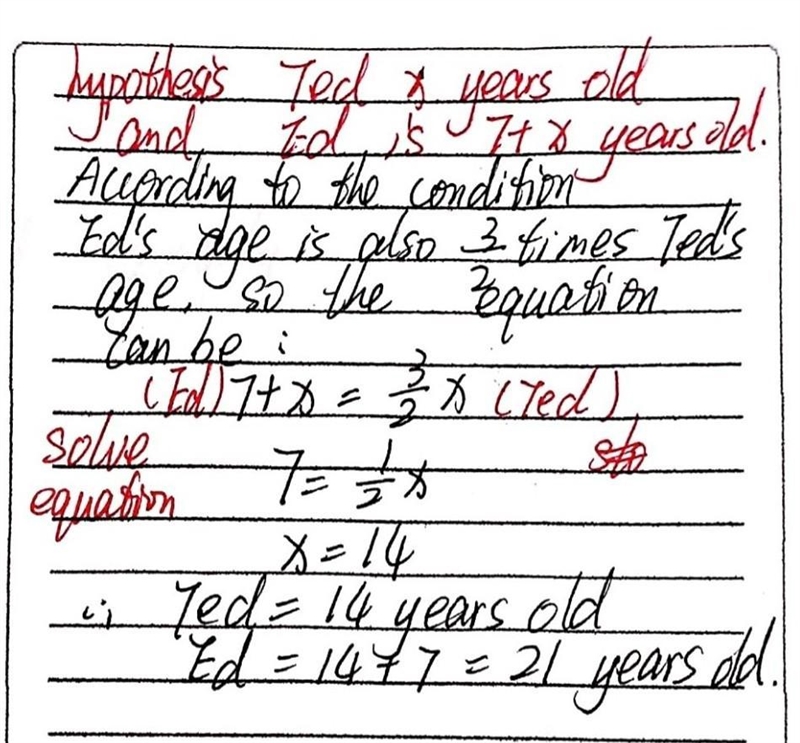 hypothesis Ted x years old
and Ed is 7+x years old.
According to the condition
Ed's age is also 3/2 times Ted's
age. so the equation
can be:
(Ed) 7+x = 3/2 x (Ted)
solve
equation
7 = 1/2 x
x = 14
∴ Ted = 14 years old
Ed = 14+7 = 21 years old.